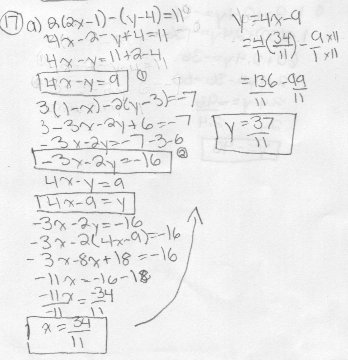 17) a) 2(2x-1)-(y-4)=11
4x-2-y+4=11
4x-y=11+2-4
4x-y=9 ①
3(1-x)-2(y-3)=-7
3-3x-2y+6=-7
-3x-2y=-7-3-6
-3x-2y=-16 ②
4x-y=9
4x-9=y
-3x-2y=-16
-3x-2(4x-9)=-16
-3x-8x+18=-16
-11x=-16-18
-11x/-11=-34/-11
x=34/11
y=4x-9
=4/1(34/11)-9×11/1×11
=136-99/11 11
y=37/11